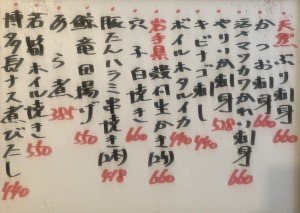 天然ぶり刺身 660
かつお刺身 660
活〆マツカワかれい刺身 660
やりいか刺身 528
キビナゴ刺し 440
ボイルホタルイカ 440
岩手県殻付生かき(1ケ) 660
穴子白焼き 660
豚たんハラミ串焼き(2本) 418
鯨竜田揚げ 550
あら煮 385
若鶏ホイル焼き 550
博多長ナス煮びたし 440